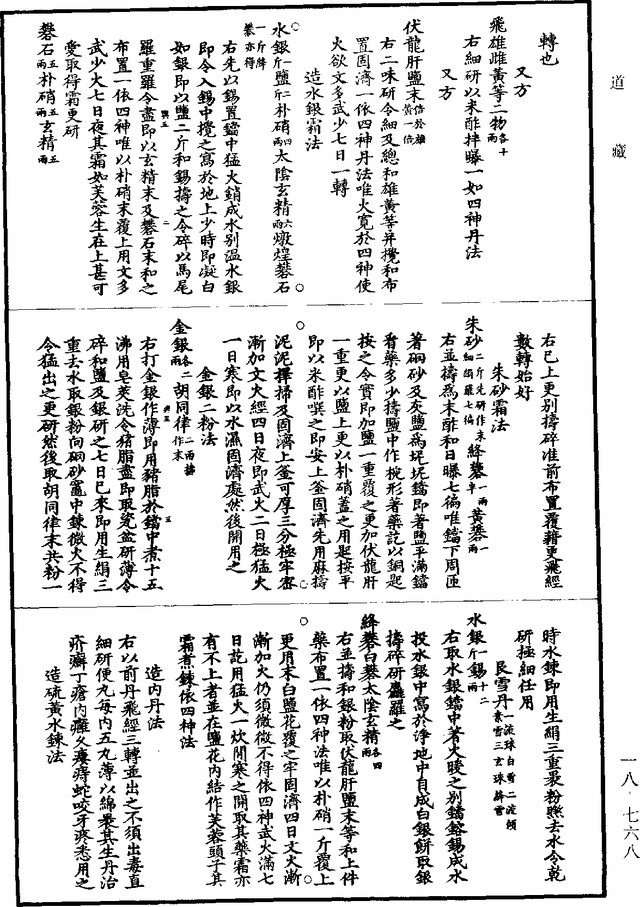 道藏
轉也
又方
飛雄雌黃等二物各十兩
右細研以米酢拌曝一如四神丹法
又方
伏龍肝鹽末倍於雄黃一倍
右二味研令細及總和雄黃等并攪和布
置固濟一依四神丹法唯火寬於四神使
火欲文多武少七日一轉
造水銀霜法
水銀一斤鹽二斤朴硝四兩太陰玄精六兩燉煌礬石
一斤絳礬亦得
右先以錫置鐺中猛火銷成水別溫水銀
即令入錫中攪之寫於地上少時即凝白
如銀即以鹽二斤和錫擣之令碎以馬尾
羅重羅令盡即以玄精末及礬石末和之
布置一依四神唯以朴硝末覆上用文多
武少火七日夜其霜如芙蓉生在上甚可
愛取得霜更研
礬石五兩朴硝五兩玄精五兩
右已上更別擣碎准前布置覆藉更飛經
數轉始好
朱砂霜法
朱砂二斤先研作末細絹羅七徧絳礬一兩半黃礬一兩
右並擣為末酢和日曝七徧唯鐺下周匝
著硇砂及灰鹽為坯坯鐺即著鹽平滿鐺
看藥多少擣鹽中作椀形著藥訖以銅匙
按之令實即加鹽一重覆之更加伏龍肝
一重更以鹽上更以朴硝蓋之用匙按平
即以米酢噀之即安上釜固濟先用麻擣
泥泥擇掃及固濟上釜可厚三分極牢密
漸加文火經四日夜即武火二日極猛火
一日寒即以水濕固濟處然後開用之
金銀二粉法
金銀各二兩胡同律一兩擣作末
右打金銀作薄即用豬脂於鐺中煮十五
沸用皂莢洗令豬脂盡即取瓷盆研薄令
碎和鹽及銀研之七日已來即用生絹三
重去水取銀粉向硇砂竈中鍊微火不得
令猛出之更研然後取胡同律末共粉一
時水鍊即用生絹三重裹粉㷟去水令乾
研極細任用
艮雪丹一流珠白雪二流頒素雪三玄珠絳雪
水銀一斤錫十二兩
右取水銀鐺中著火暖之別鐺鎔錫成水
投水銀中寫於淨地中自成白銀餅取銀
擣碎研麤羅之
絳礬白礬太陰玄精各四兩
右並擣和銀粉取伏龍肝鹽末等和上件
藥布置一依四神法唯以朴硝一斤覆上
更用末白鹽花覆之牢固濟四日文火漸
漸加火仍須微微不得依四神武火滿七
日訖用猛火一炊開寒之開取其藥霜亦
有不上者並在鹽花內結作芙蓉頭子其
霜煮鍊依四神法
造內丹法
右以前丹飛經三轉並出之不須出毒直
細研便丸每內五丸薄以綿裹其生丹治
疥癬丁瘡內癰久瘻痔蛇咬牙疼悉用之
造硫黃水鍊法
一八·七六八